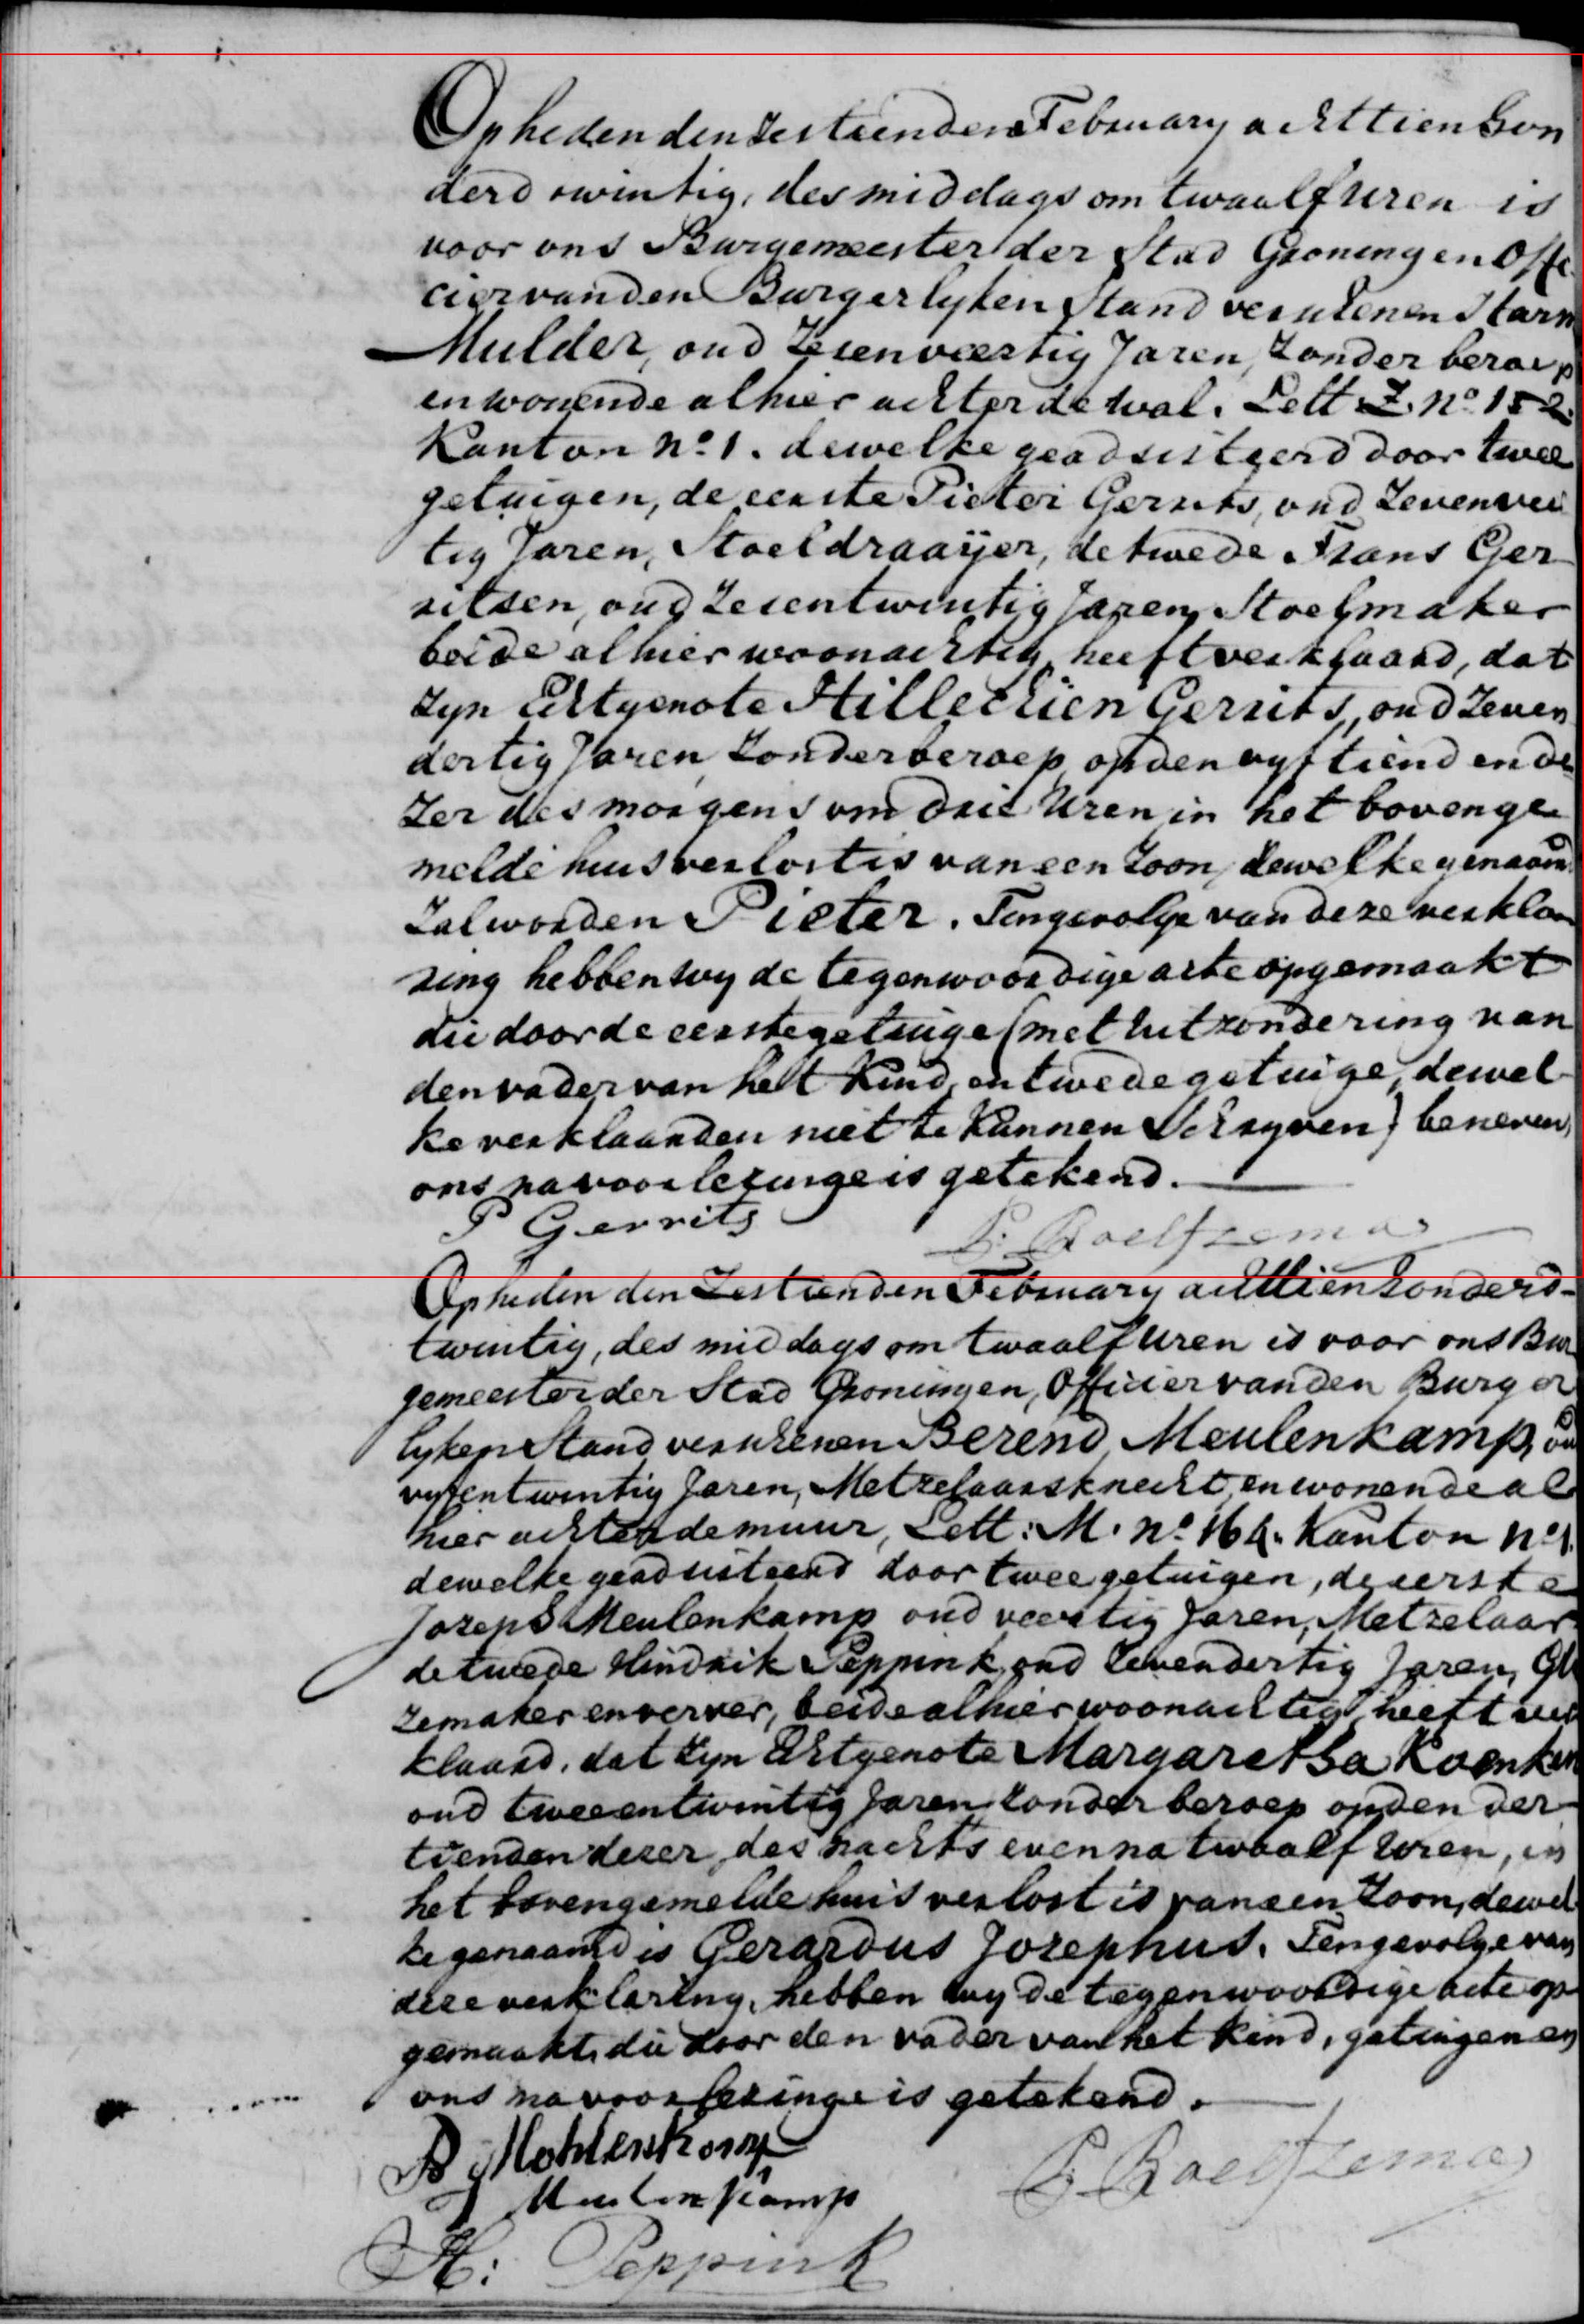 Op heden den Zestienden February achttien hon
derd twintig, des middags om twaalf Uren is
voor ons Burgemeester der Stad Groningen Offi
cier van den Burgerlyken Stand verschenen Harm
Mulder, oud Zesenveertig Jaren, Zonder beroep
en wonende alhier achter de wal. Lett. Z. No 152.
Kanton No 1. dewelke geadsisteerd door twee
getuigen, de eerste Pieter Gerrits, oud Zevenveer
tig Jaren, Stoeldraaijer, de twede Frans Ger
ritsen, oud Zesentwintig Jaren, Stoelmaker
beide alhier woonachtig, heeft verklaard, dat
Zyn Echtgenote Hillechien Gerrits, oud Zeven
dertig Jaren, Zonder beroep, op den vyftienden de
Zer des morgens om drie Uren, in het bovenge
melde huis verlost is van een Zoon, dewelke genaamd
Zal worden Pieter. Tengevolge van deze verkla
ring hebben wy de tegenwoordige acte opgemaakt
die door de eerste getuige (met uitzondering van
den vader van het Kind, en twede getuige, dewel
ke verklaarden niet te Kunnen Schryven) benevens
ons na voorlezinge is getekend.
P Gerrits
P. Roelfzema
Op heden den Zestienden February achttienhonderd
twintig, des middags om twaalf Uren is voor ons Bur
gemeester der Stad Groningen, Officier van den Burger
lyken Stand verschenen Berend Meulenkamp, oud
vyfentwintig Jaren, Metzelaarsknecht, en wonende al
hier achter de muur, Lett: M. No 164. Kanton No 1.
dewelke geadsisteerd door twee getuigen, de eerste
Jozeph Meulenkamp oud veertig Jaren, Metzelaar
de twede Hindrik Peppink oud Zevendertig Jaren, Gla
zemaker en verver, beide alhier woonachtig, heeft ver
klaard, dat Zyn Echtgenote Margaretha Koenken
oud tweeentwintig Jaren, Zonder beroep op den der
tienden dezer, des nachts even na twaalf Uren, in
het bovengemelde huis verlost is van een Zoon, dewel
ke genaamd is Gerardus Jozephus. Tengevolge van
deze verklaring, hebben wy de tegenwoordige acte op
gemaakt, die door den vader van het Kind, getuigen en
ons na voorlezinge is getekend.
B Mohlenkamp
Meulenkamp
P. Roelfzema
H: Peppink